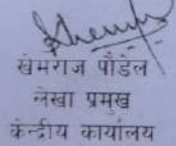 खेमराज पौडेल
लेखा प्रमुख
केन्द्रीय कार्यालय